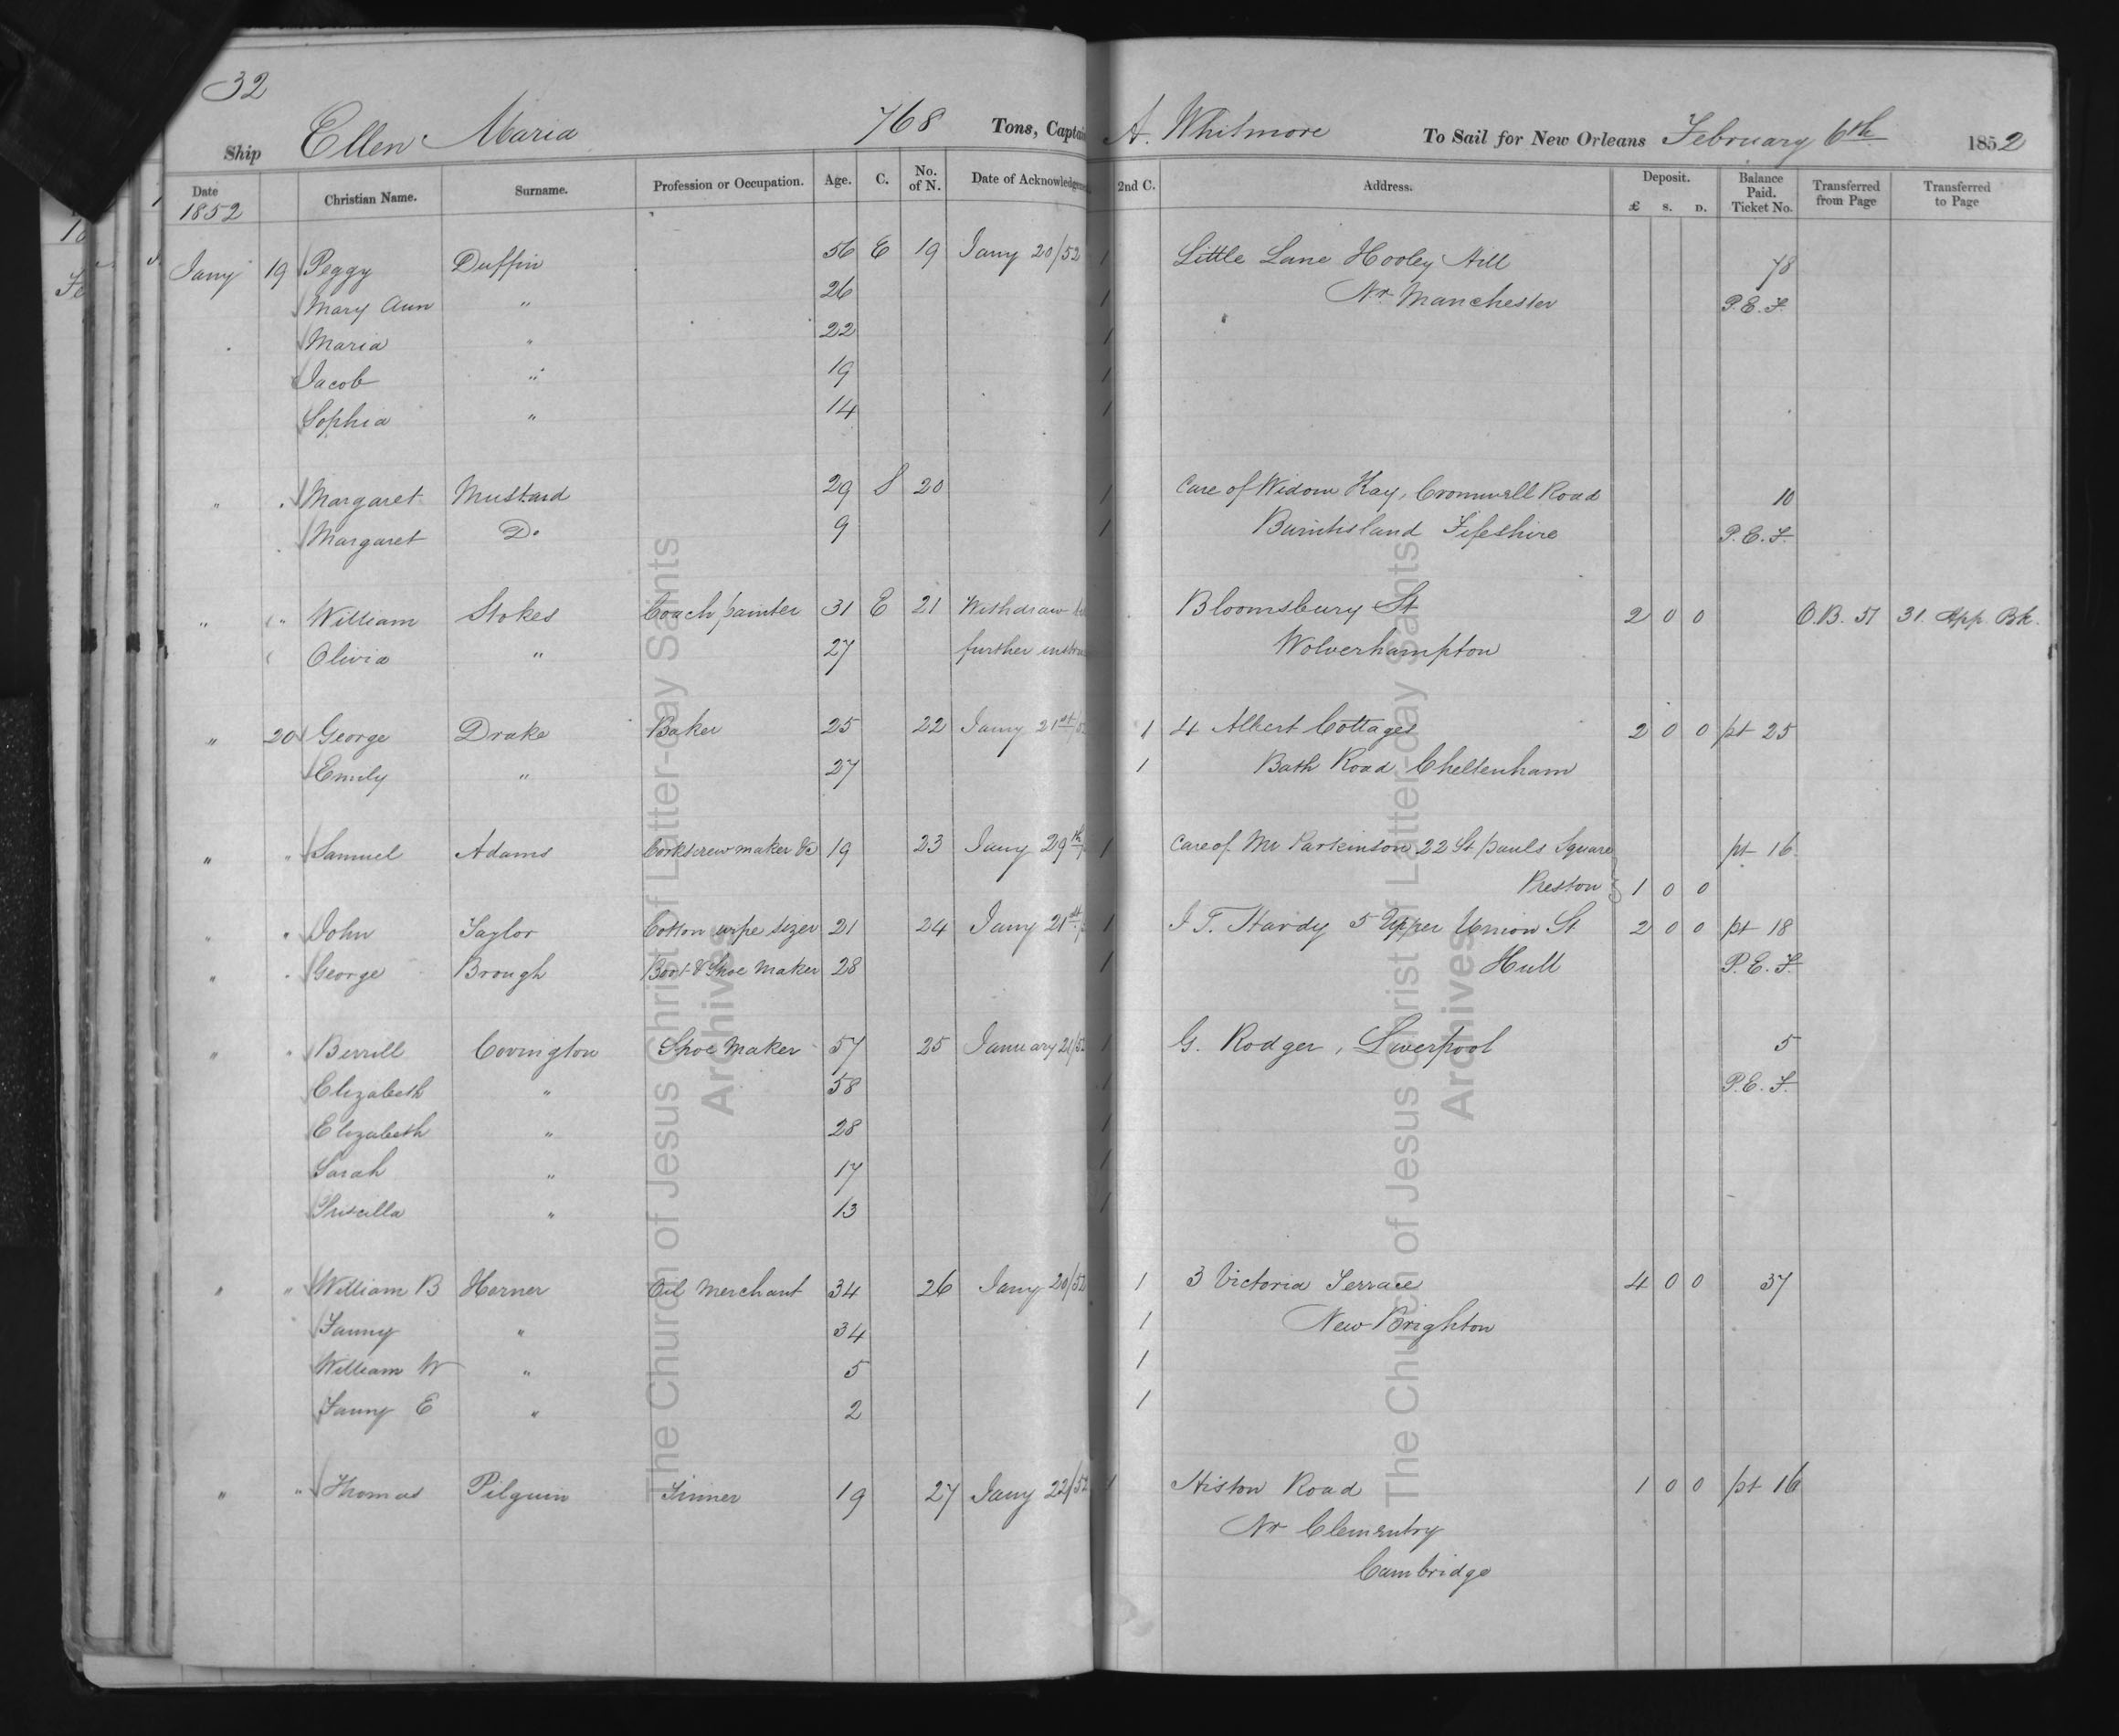 32
Ship Ellen Maria 768 Tons, Captain A. Whitmore To Sail for New Orleans February 6th 1852
Date Christian Name. Surname. Profession or Occupation. Age. C. No. of N. Date of Acknowledgement 2nd C. Address. Deposit. £ S. D. Balance Paid. Ticket No. Transferred from Page Transferred to Page
1852
Jany 19 Peggy Duffin 56 E 19 Jany 20/52 1 Little Lane Hooley Hill 78
Mary Ann " 26 1 Nr Manchester P.E.F.
Maria " 22 1
Jacob " 19 1
Sophia " 14 1
" " Margaret Mustard 29 S 20 1 Care of Widow Kay, Cromwell Road 10
Margaret Do 9 1 Burntisland Fifeshire P.E.F.
" " William Stokes Coach painter 31 E 21 Withdraw Bloomsbury St 2 0 0 O.B. 51 31 App. Bk.
Olivia " 27 further Wolverhampton
" 20 George Drake Baker 25 22 Jany 21st/52 1 4 Albert Cottages 2 0 0 pt 25
Emily " 27 1 Bath Road Cheltenham
" " Samuel Adams Corkscrew maker &c 19 23 Jany 29th 1 Care of Mr Parkinson 22 St pauls Square pt 16
Preston 1 0 0
" " John Taylor Cotton wipe sizer 21 24 Jany 21st 1 J T. Hardy 5 Upper Union St 2 0 0 pt 18
" " George Brough Boot & Shoe Maker 28 1 Hull P.E.F.
" " Berrill Covington Shoe Maker 57 25 January 21/52 1 G. Rodger, Liverpool 5
Elizabeth " 58 1 P.E.F.
Elizabeth " 28 1
Sarah " 17 1
Priscilla " 13 1
" " William B Horner Oil Merchant 34 26 Jany 20/52 1 3 Victoria Terrace 4 0 0 37
Fanny " 34 1 New Brighton
William W " 5 1
Fanny E " 2 1
" " Thomas Pilguim 19 27 Jany 22/52 1 Histon Road 1 0 0 pt 16
Nr Clementry
Cambridge
The Church of Jesus Christ of Latter-day Saints
Archives
The Church of Jesus Christ of Latter-day Saints
Archives